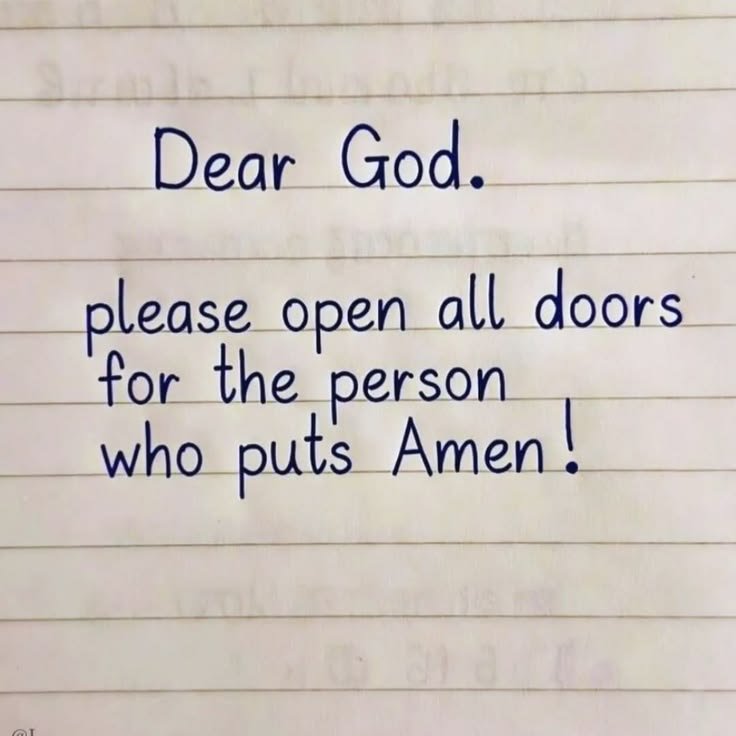 Dear God.
please open all doors
for the person
who puts Amen!